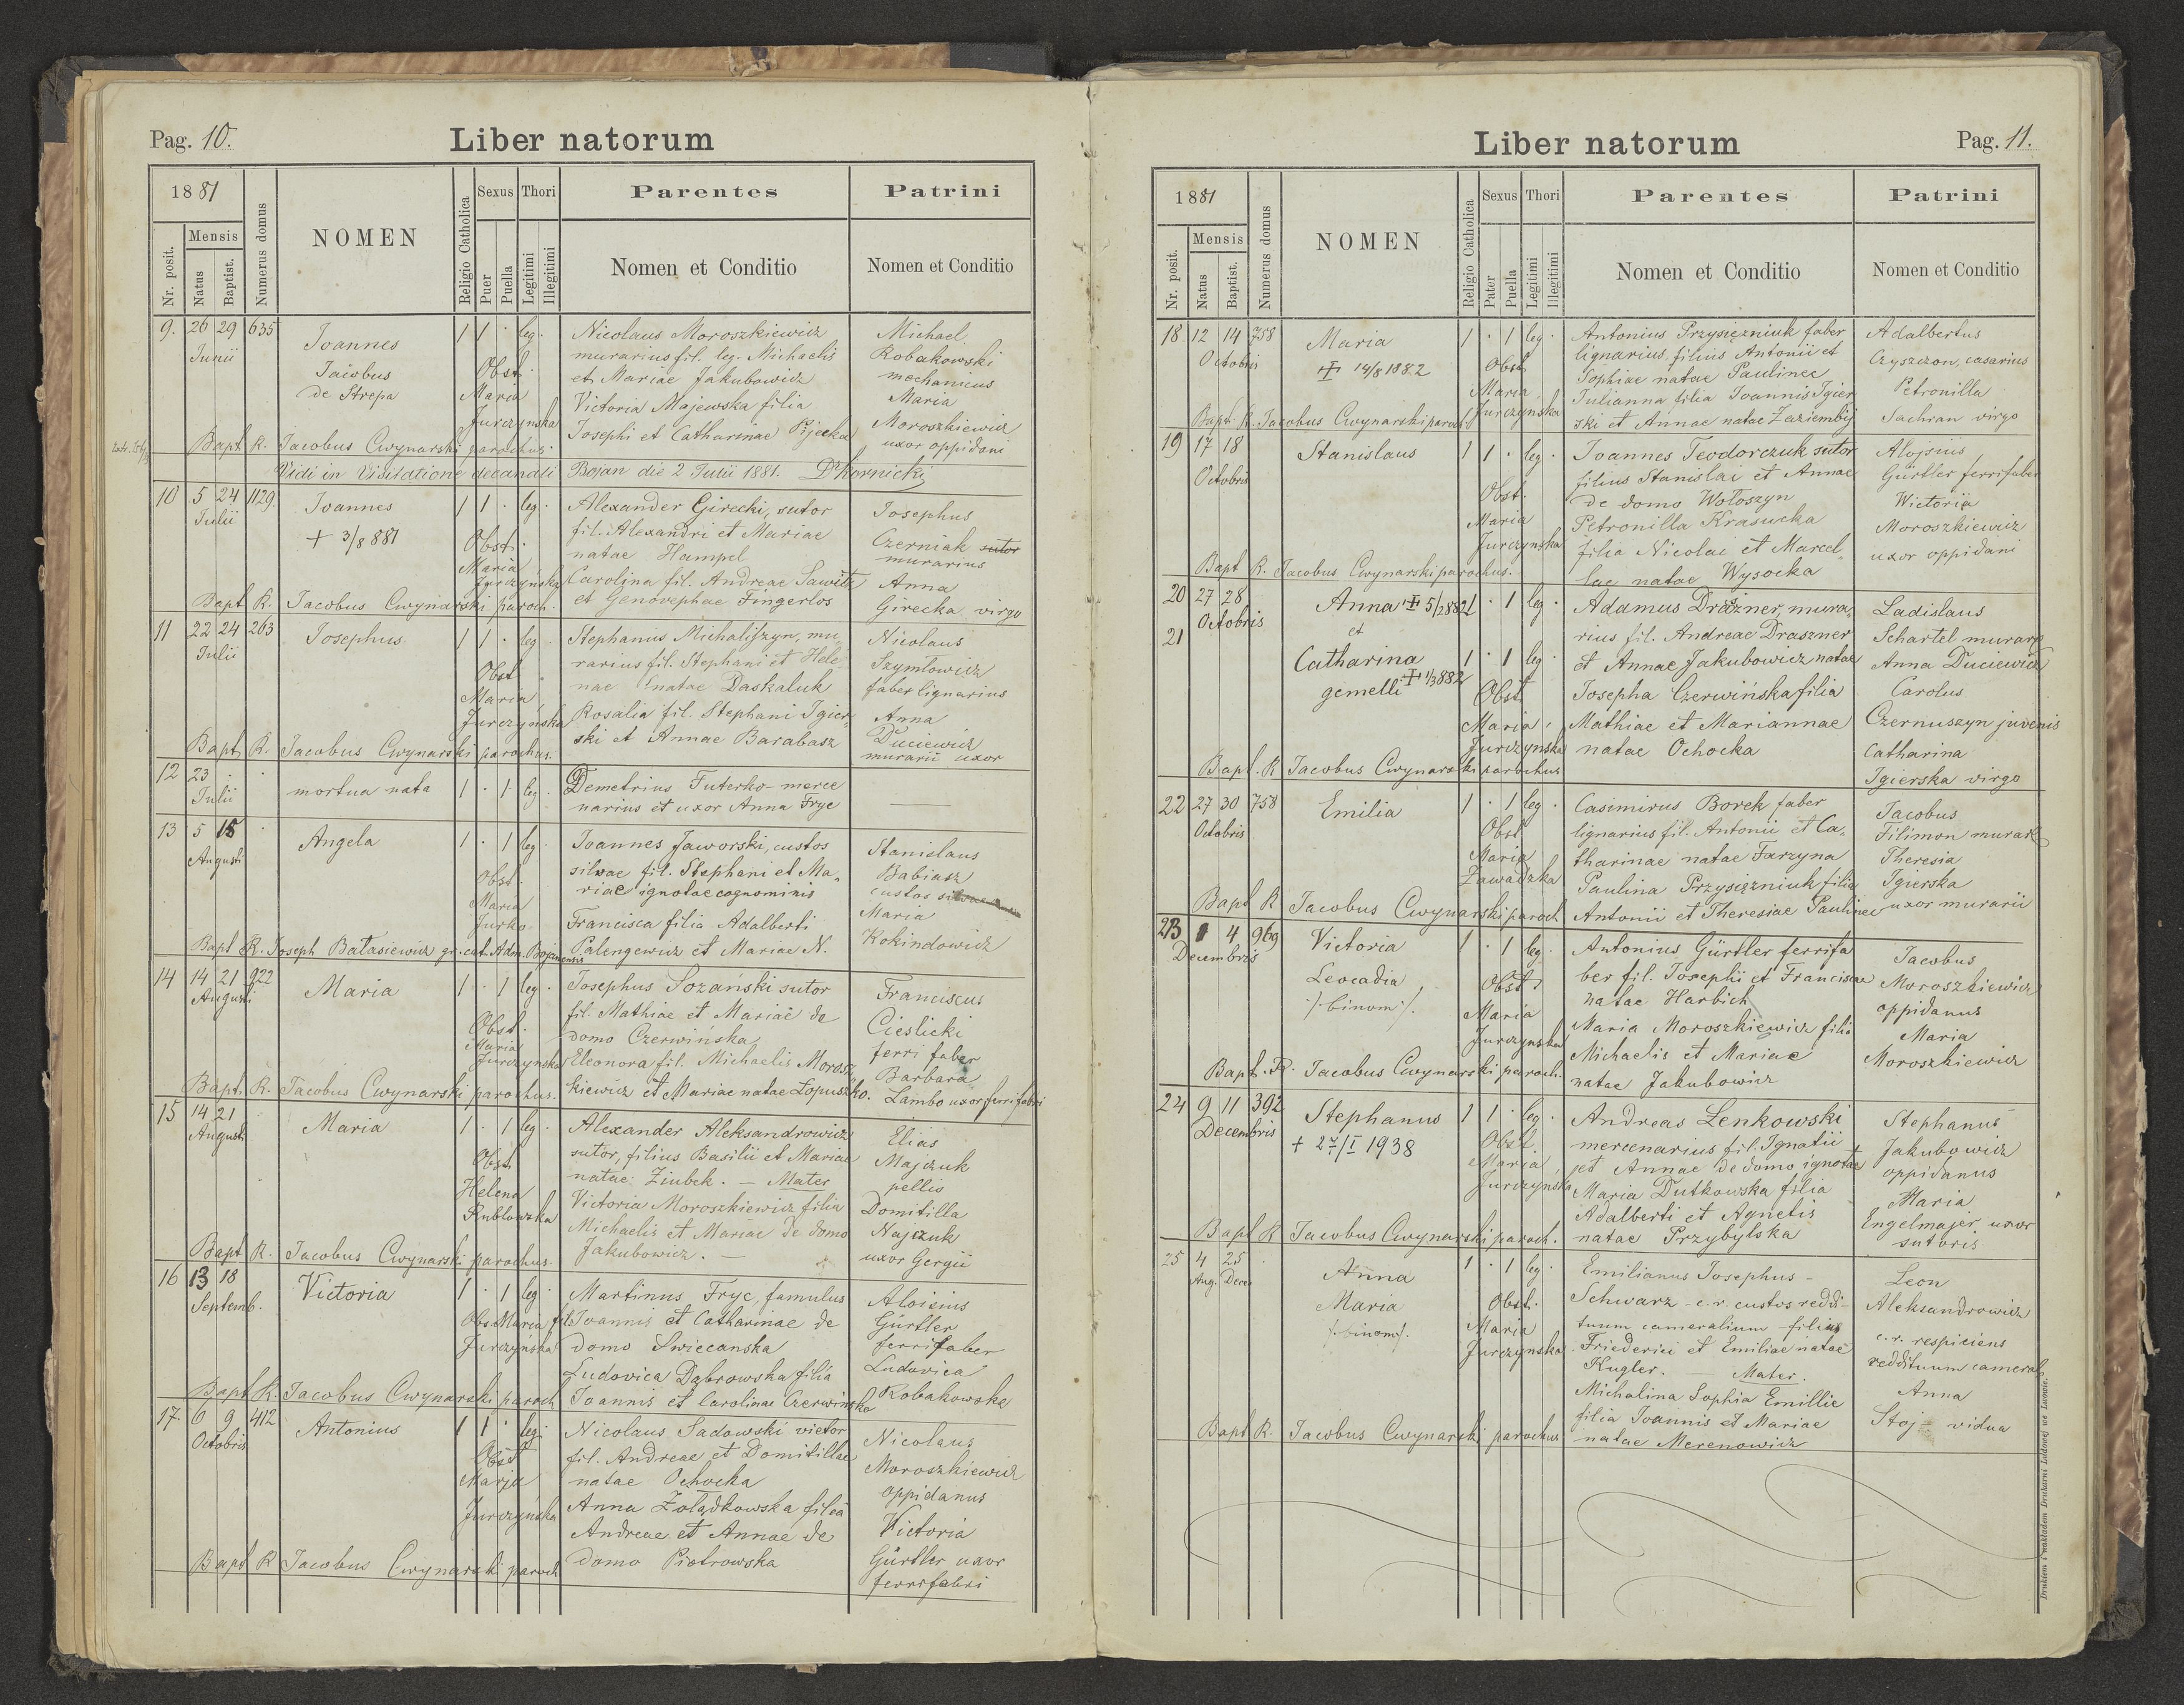 Pag. 10.
Liber natorum
1881
Nr. posit.
Mensis
Natus
Baptist.
Numerus domus
NOMEN
Religio Catholica
Sexus
Puer
Puella
Thori
Legitimi
Illegitimi
Parentes
Nomen et Conditio
Patrini
Nomen et Conditio
9. 26 29 635
Junii
Joannes
Jacobus
de Strepa
1 1 · leg ·
Obst.
Maria
Jurczynska
Nicolaus Moroszkiewicz
murarius fil. leg. Michaelis
et Mariae Jakubowicz
Victoria Majewska filia
Josephi et Catharinae
Michael
Robakowski
mechanicus
Maria
Moroszkiewicz
uxor oppidani
Bapt R. Jacobus Cwynarski parochus
Vidi in Visitatione decanali Bojan die 2 Julii 1881. Dr Kornicki
10 5 24 1129
Julii
Joannes
+ 3/8 881
1 1 · leg ·
Obst.
Maria
Jurczyńska
Alexander Girecki, sutor
fil. Alexandri et Mariae
natae Hampel
Carolina fil. Andreae Sawitz
et Genovephae Fingerlos
Josephus
Czerniak sutor
murarius
Anna
Girecka virgo
Bapt R. Jacobus Cwynarski paroch.
11 22 24 263
Julii
Josephus
1 1 · leg ·
Obst
Maria
Jurczyńska
Stephanus Michaliszyn, mu,
rarius fil. Stephani et Hele,
nae natae Daskaluk
Rosalia fil. Stephani Igier,
ski et Annae Barabasz
Nicolaus
Szymlowicz
faber lignarius
Anna
Duciewicz
murarii uxor
Bapt R. Jacobus Cwynarski parochus.
12 23 · ·
Julii
mortua nata
1 · 1 leg ·
Demetrius Futerko merce
narius et uxor Anna Fryc
13 5 15 ·
Augusti
Angela
1 · 1 leg ·
Obst.
Maria
Jurko
Joannes Jaworski, custos
silvae fil. Stephani et Ma,
riae ignotae cognominis
Francisca filia Adalberti
Palengewicz et Mariae N.
Stanislaus
Babiasz
custos silvae
Maria
Kokindowicz
Bapt R. Joseph Batasiewicz gr. cat. Adm. Bojanensis
14 14 21 922
Augusti
Maria
1 · 1 leg ·
Obst.
Maria
Jurczynska
Josephus Sozański sutor
fil. Mathiae et Mariae de
domo Czerwińska
Eleonora fil. Michaelis Morosz
kiewicz et Mariae natae Łopuszko.
Franciscus
Cieslicki
ferri faber
Barbara
Lambo uxor ferri fabri
Bapt. R. Jacobus Cwynarski parochus.
15 14 21
Augusti
Maria
1 · 1 leg ·
Obst.
Helena
Rublowska
Alexander Aleksandrowicz
sutor, filius Basilii et Mariae
natae Ziubek. — Mater
Victoria Moroszkiewicz filia
Michaelis et Mariae de domo
Jakubowicz. —
Elias
Majczuk
pellio
Domitilla
Najczuk
uxor Gergii
Bapt R. Jacobus Cwynarski parochus.
16 13 18
Septemb.
Victoria
1 · 1 leg ·
Obs. Maria
Jurczyńska
Martinus Fryc, famulus
fil. Joannis et Catharinae de
domo Swiecanska
Ludovica Dąbrowska filia
Joannis et Carolinae Czerwinska
Aloisius
Gürtler
ferrifaber
Ludovica
Robakowska
Bapt R. Jacobus Cwynarski paroch
17. 6 9 412
Octobris
Antonius
1 1 · leg ·
Obst
Marja
Jurczyńska
Nicolaus Sadowski victor
fil. Andreae et Domitillae
natae Ochocka
Anna Żolądkowska filea
Andreae et Annae de
domo Piotrowska
Nicolaus
Moroszkiewicz
oppidanus
Victoria
Gürtler uxor
ferrifabri
Bapt R Jacobus Cwynarski paroch
Liber natorum
Pag. 11.
1881
Nr. posit.
Mensis
Natus
Baptist.
Numerus domus
NOMEN
Religio Catholica
Sexus
Pater
Puella
Thori
Legitimi
Illegitimi
Parentes
Nomen et Conditio
Patrini
Nomen et Conditio
18 12 14 758
Octobris
Maria
14/8 1882
1 · 1 leg ·
Obst
Maria
Jurczynska
Antonius Przysiężniuk faber
lignarius, filius Antonii et
Sophiae natae Paulinec
Julianna filia Joannis Igier
ski et Annae natae Zaziembij
Adalbertus
Czyszczon, casarius
Petronilla
Sachran virgo
Bapt. R. Jacobus Cwynarski paroch
19 17 18
Octobris
Stanislaus
1 1 · leg ·
Obst.
Maria
Jurczynska
Joannes Teodorczuk sutor
filius Stanislai et Annae
de domo Wołoszyn
Petronilla Krasucka
filia Nicolai et Marcel,
lae natae Wysocka
Alojsius
Gürtler ferrifaber
Wictoria
Moroszkiewicz
uxor oppidani
Bapt R. Jacobus Cwynarski parochus.
20 27 28
Octobris
21
Anna 5/2 882
et
Catharina
gemelli 1/3 882
1 · 1 leg ·
1 · 1 leg
Obst
Maria
Jurczynska
Adamus Draszner, mura,
rius fil. Andreae Draszner
et Annae Jakubowicz natae
Josepha Czerwińska filia
Mathiae et Mariannae
natae Ochocka
Ladislaus
Schartel murarz
Anna Duciewicz
Carolus
Czernuszyn juvenis
Catharina
Igierska virgo
Bapt. R Jacobus Cwynarski parochus
22 27 30 758
Octobris
Emilia
1 · 1 leg ·
Obst
Maria
Zawadzka
Casimirus Borek faber
lignarius fil. Antonii et Ca,
tharinae natae Farzyna
Paulina Przysiężniuk filia
Antonii et Theresiae Paulinec
Jacobus
Filimon murarz
Theresia
Igierska
uxor murarii
Bapt R Jacobus Cwynarski paroch
23 1 4 969
Decembris
Victoria
Leocadia
/binom/.
1 · 1 leg ·
Obst
Maria
Jurczynska
Antonius Gürtler ferrifa
ber fil. Josephi et Franciscae
natae Harbich
Maria Moroszkiewicz filia
Michaelis et Mariae
natae Jakubowicz
Jacobus
Moroszkiewicz
oppidanus
Maria
Moroszkiewicz
Bapt. R. Jacobus Cwynarski paroch.
24 9 11 392
Decembris
Stephanus
+ 27/I 1938
1 1 · leg ·
Obst.
Maria
Jurczynska
Andreas Lenkowski
mercenarius fil. Ignatii
et Annae de domo ignotae
Maria Dutkowska filia
Adalberti et Agnetis
natae Przybylska
Stephanus
Jakubowicz
oppidanus
Maria
Engelmajer, uxor
sutoris
Bapt R Jacobus Cwynarski paroch.
25 4 25
Aug. Dece
Anna
Maria
/:binom/.
1 · 1 leg ·
Obst.
Maria
Jurczynska
Emilianus Josephus -
Schwarz - c. r. custos reddi-
tuum cameralium - filius
Friederici et Emiliae natae
Kugler. — Mater.
Michalina Sophia Emillie
filia Joannis et Mariae
natae Merenowicz
Leon
Aleksandrowicz
c. r. respiciens
reddituum cameral.
Anna
Stoj - vidua
Bapt R. Jacobus Cwynarski parochus
Drukiem i nakładem Drukarni Ludowej we Lwowie.